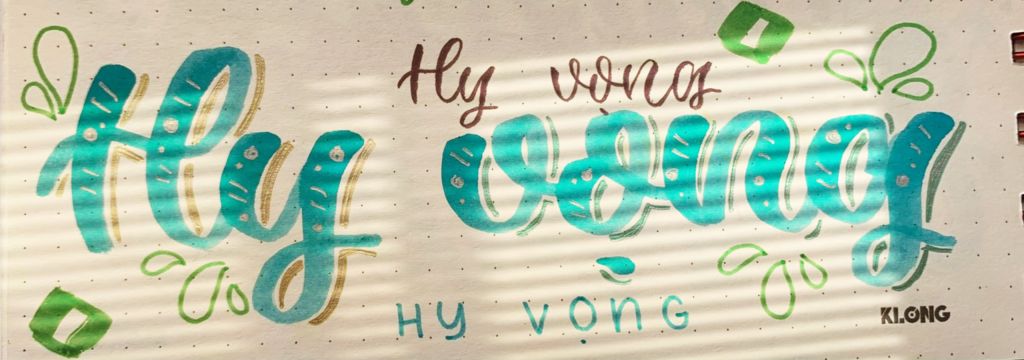 Hy vọng
Hy vọng
HY VỌNG
KLONG